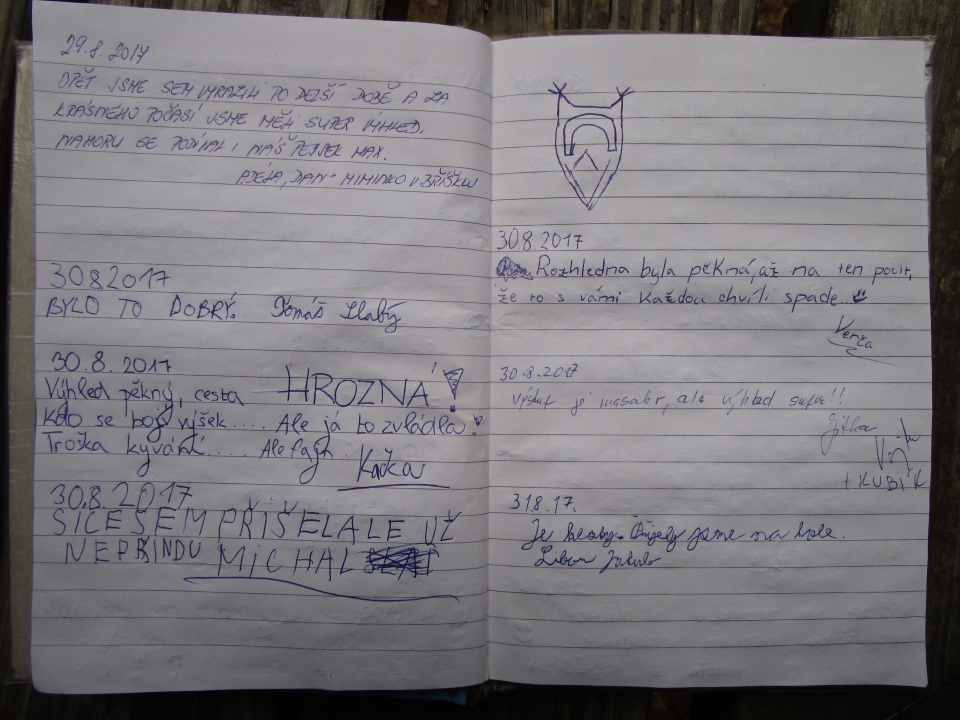 29.8.2017
OPĚT JSME SEM VYRAZILI PO DELŠÍ DOBĚ A ZA
KRÁSNÉHO POČASÍ JSME MĚLI SUPER VÝHLED.
NAHORU SE PODÍVAL I NÁŠ PEJSEK MAX.
ADÉLA, DAN + MIMINKO V BŘÍŠKU
30.8.2017
BYLO TO DOBRÝ. Tomáš Slabý
30.8.2017
Výhled pěkný, cesta HROZNÁ!
Kdo se bojí výšek.... Ale já to zvládla!
Troška kývání.... Ale fajn
Kačka
30.8.2017
SICE SEM PŘIŠEL ALE UŽ
NEPŘINDU MICHAL
30.8.2017
Rozhledna byla pěkná, až na ten pocit,
že to s vámi každou chvíli spade..
Verča
30.8.2017
výstup je masakr, ale výhled super!!
Jitka
+ KUBÍK
31.8.17.
Je hezky. Přijely jsme na kole.
Libor